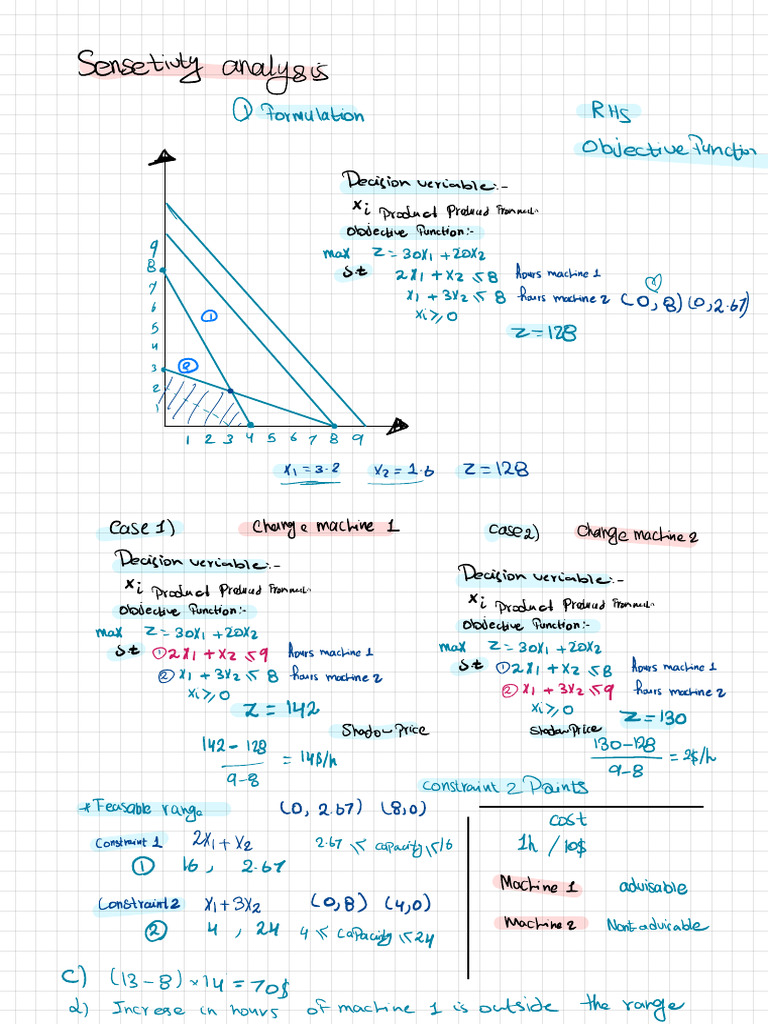 Sensetivty analysis
① Formulation
RHS
Objective Function
Decision veriable:-
xi Product Produced From
Objective Function:-
max Z = 30x1 + 20x2
S.t 2x1 + x2 ≤ 8 hours machine 1
x1 + 3x2 ≤ 8 hours machine 2 (0,8) (0,2.67)
xi ≥ 0
Z = 128
9
8
7
6
5
4
3
2
1
①
②
1 2 3 4 5 6 7 8 9
x1 = 3.2 x2 = 1.6 Z = 128
Case 1) Change machine 1
Decision veriable:-
xi Product Produced From
Objective Function:-
max Z = 30x1 + 20x2
S.t ① 2x1 + x2 ≤ 9 hours machine 1
② x1 + 3x2 ≤ 8 hours machine 2
xi ≥ 0
Z = 142
Shadow Price
142 - 128
9-8
= 14$/h
case 2) Change machine 2
Decision veriable:-
xi Product Produced From
Objective Function:-
max Z = 30x1 + 20x2
S.t ① 2x1 + x2 ≤ 8 hours machine 1
② x1 + 3x2 ≤ 9 hours machine 2
xi ≥ 0
Z = 130
Shadow Price
130 - 128
9-8
= 2$/h
constraint 2 Points
* Feasable range (0, 2.67) (8,0)
Constraint 1 2x1 + x2 2.67 ≤ capacity ≤ 16
① 16 , 2.67
Constraint 2 x1 + 3x2 (0,8) (4,0)
② 4 , 24 4 ≤ capacity ≤ 24
cost
1h / 10$
Machine 1 advisable
Machine 2 Nont advirable
c) (13 - 8) × 14 = 70$
d) Increse in hours of machine 1 is outside the range